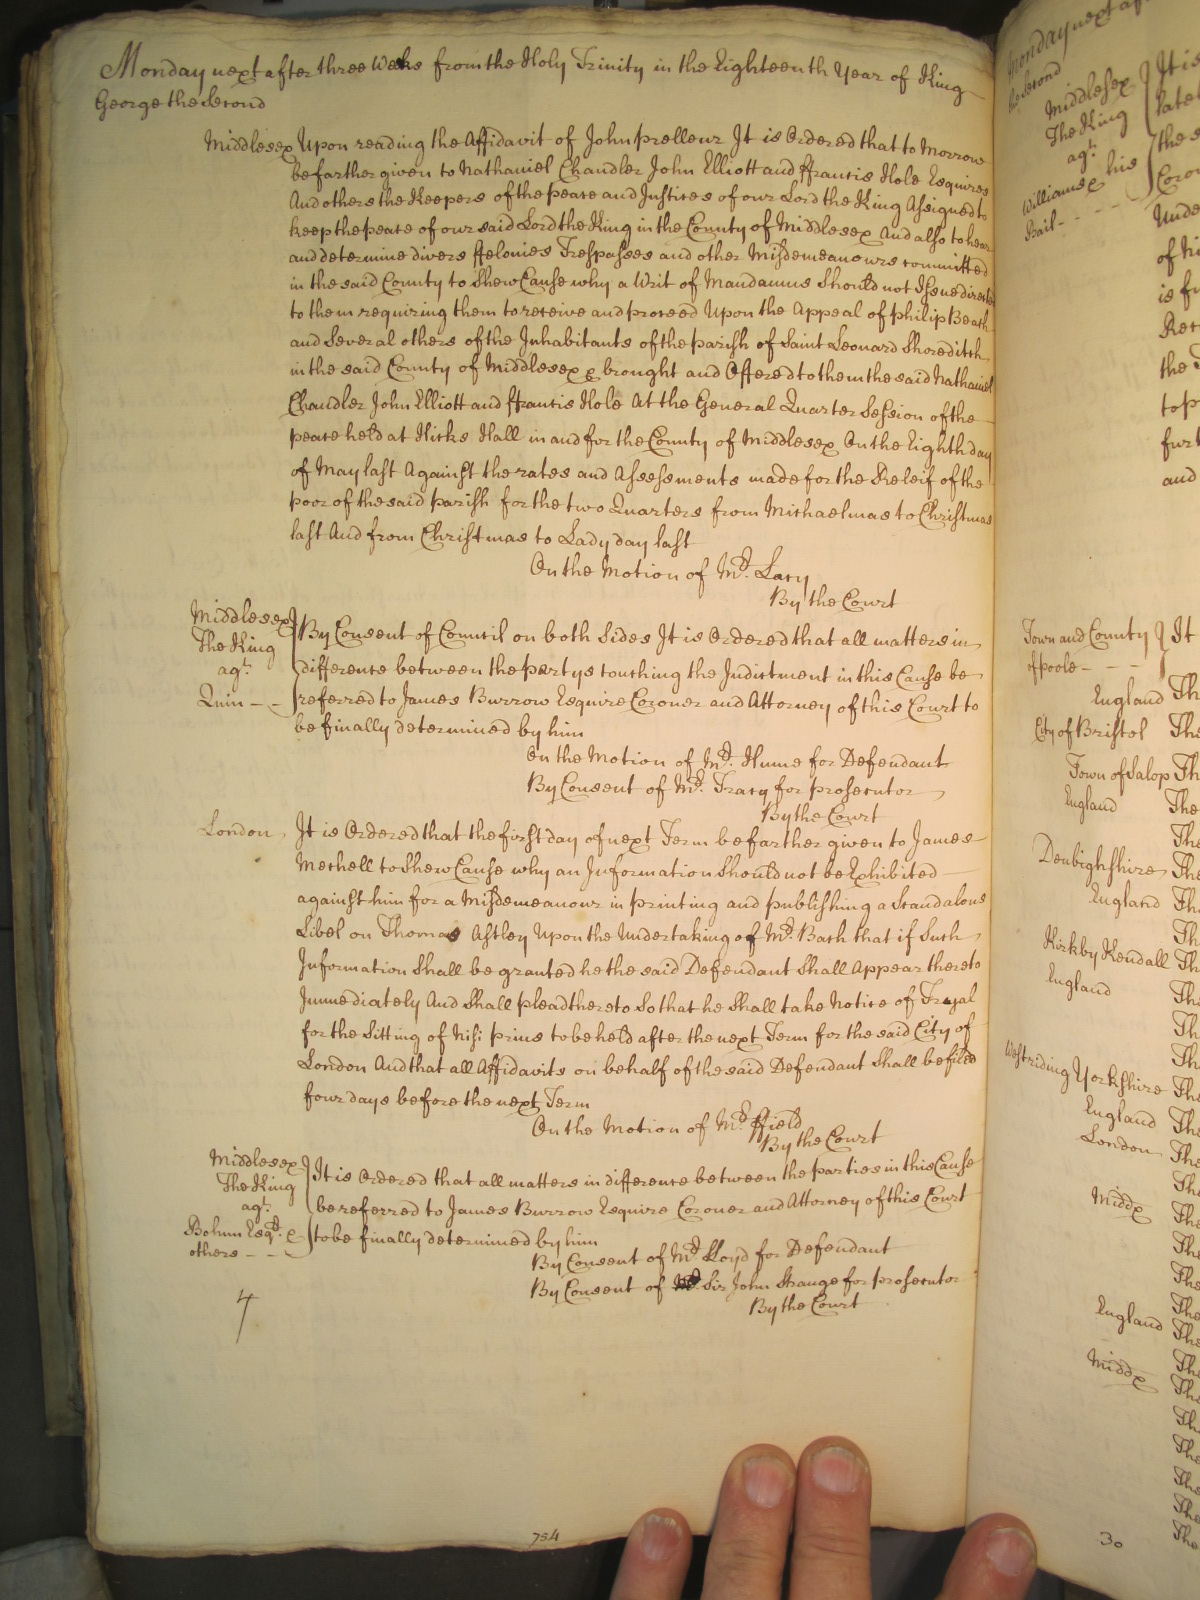 Monday next after three Weeks from the Holy Trinity in the Eighteenth Year of King
George the Second
Middlesex Upon reading the Affidavit of John Prelleur It is Ordered that to Morrow
be farther given to Nathaniel Chandler John Elliott and ffrancis Hole Esquires
And others the Keepers of the peace and Justices of our Lord the King Assigned to
keep the peace of our said Lord the King in the County of Middlesex And also to hear
and determine divers ffelonies Trespasses and other Misdemeanours committed
in the said County to Shew Cause why a Writ of Mandamus Should not Issue directed
to them requiring them to receive and proceed Upon the Appeal of Philip Beach
and Several others of the Inhabitants of the parish of Saint Leonard Shoreditch
in the said County of Middlesex brought and Offered to them the said Nathaniel
Chandler John Elliott and ffrancis Hole At the General Quarter Session of the
peace held at Hicks Hall in and for the County of Middlesex On the Eighth day
of May last Against the rates and Assessments made for the Releif of the
poor of the said parish for the two Quarters from Michaelmas to Christmas
last And from Christmas to Lady day last
On the Motion of Mr. Lacy
By the Court
Middlesex
The King
agt.
Quin
By Consent of Council on both Sides It is Ordered that all matters in
difference between the partys touching the Indictment in this Cause be
referred to James Burrow Esquire Coroner and Attorney of this Court to
be finally determined by him
On the Motion of Mr. Hume for Defendant
By Consent of Mr. Tracy for prosecutor
By the Court
London It is Ordered that the first day of next Term be farther given to James
Mechell to Shew Cause why an Information Should not be Exhibited
against him for a Misdemeanour in printing and publishing a Scandalous
Libel on Thomas Astley Upon the Undertaking of Mr. Bath that if Such
Information Shall be granted he the said Defendant Shall Appear thereto
Immediately And Shall plead thereto So that he Shall take Notice of Tryal
for the Sitting of Nisi prius to be held after the next Term for the said City of
London And that all Affidavits on behalf of the said Defendant Shall be filed
four days before the next Term
On the Motion of Mr. ffield
By the Court
Middlesex
The King
agt.
Bohun Esqr. &
others
It is Ordered that all matters in difference between the parties in this Cause
be referred to James Burrow Esquire Coroner and Attorney of this Court
to be finally determined by him
By Consent of Mr. Lloyd for Defendant
By Consent of Sir John Strange for prosecutor
By the Court
4
754
Monday next af
the Second
Middlesex
The King
agt.
Williams & his
Bail
It is
late
the s
Coro
Unde
of
is
the
top
furt
and
Town and County
of Poole
It
England The
City of Bristol The
Town of Salop The
England The
Denbighshire The
England The
Kirkby Kendall The
England The
Westriding Yorkshire The
England The
London The
Middx The
England The
Middx The
30